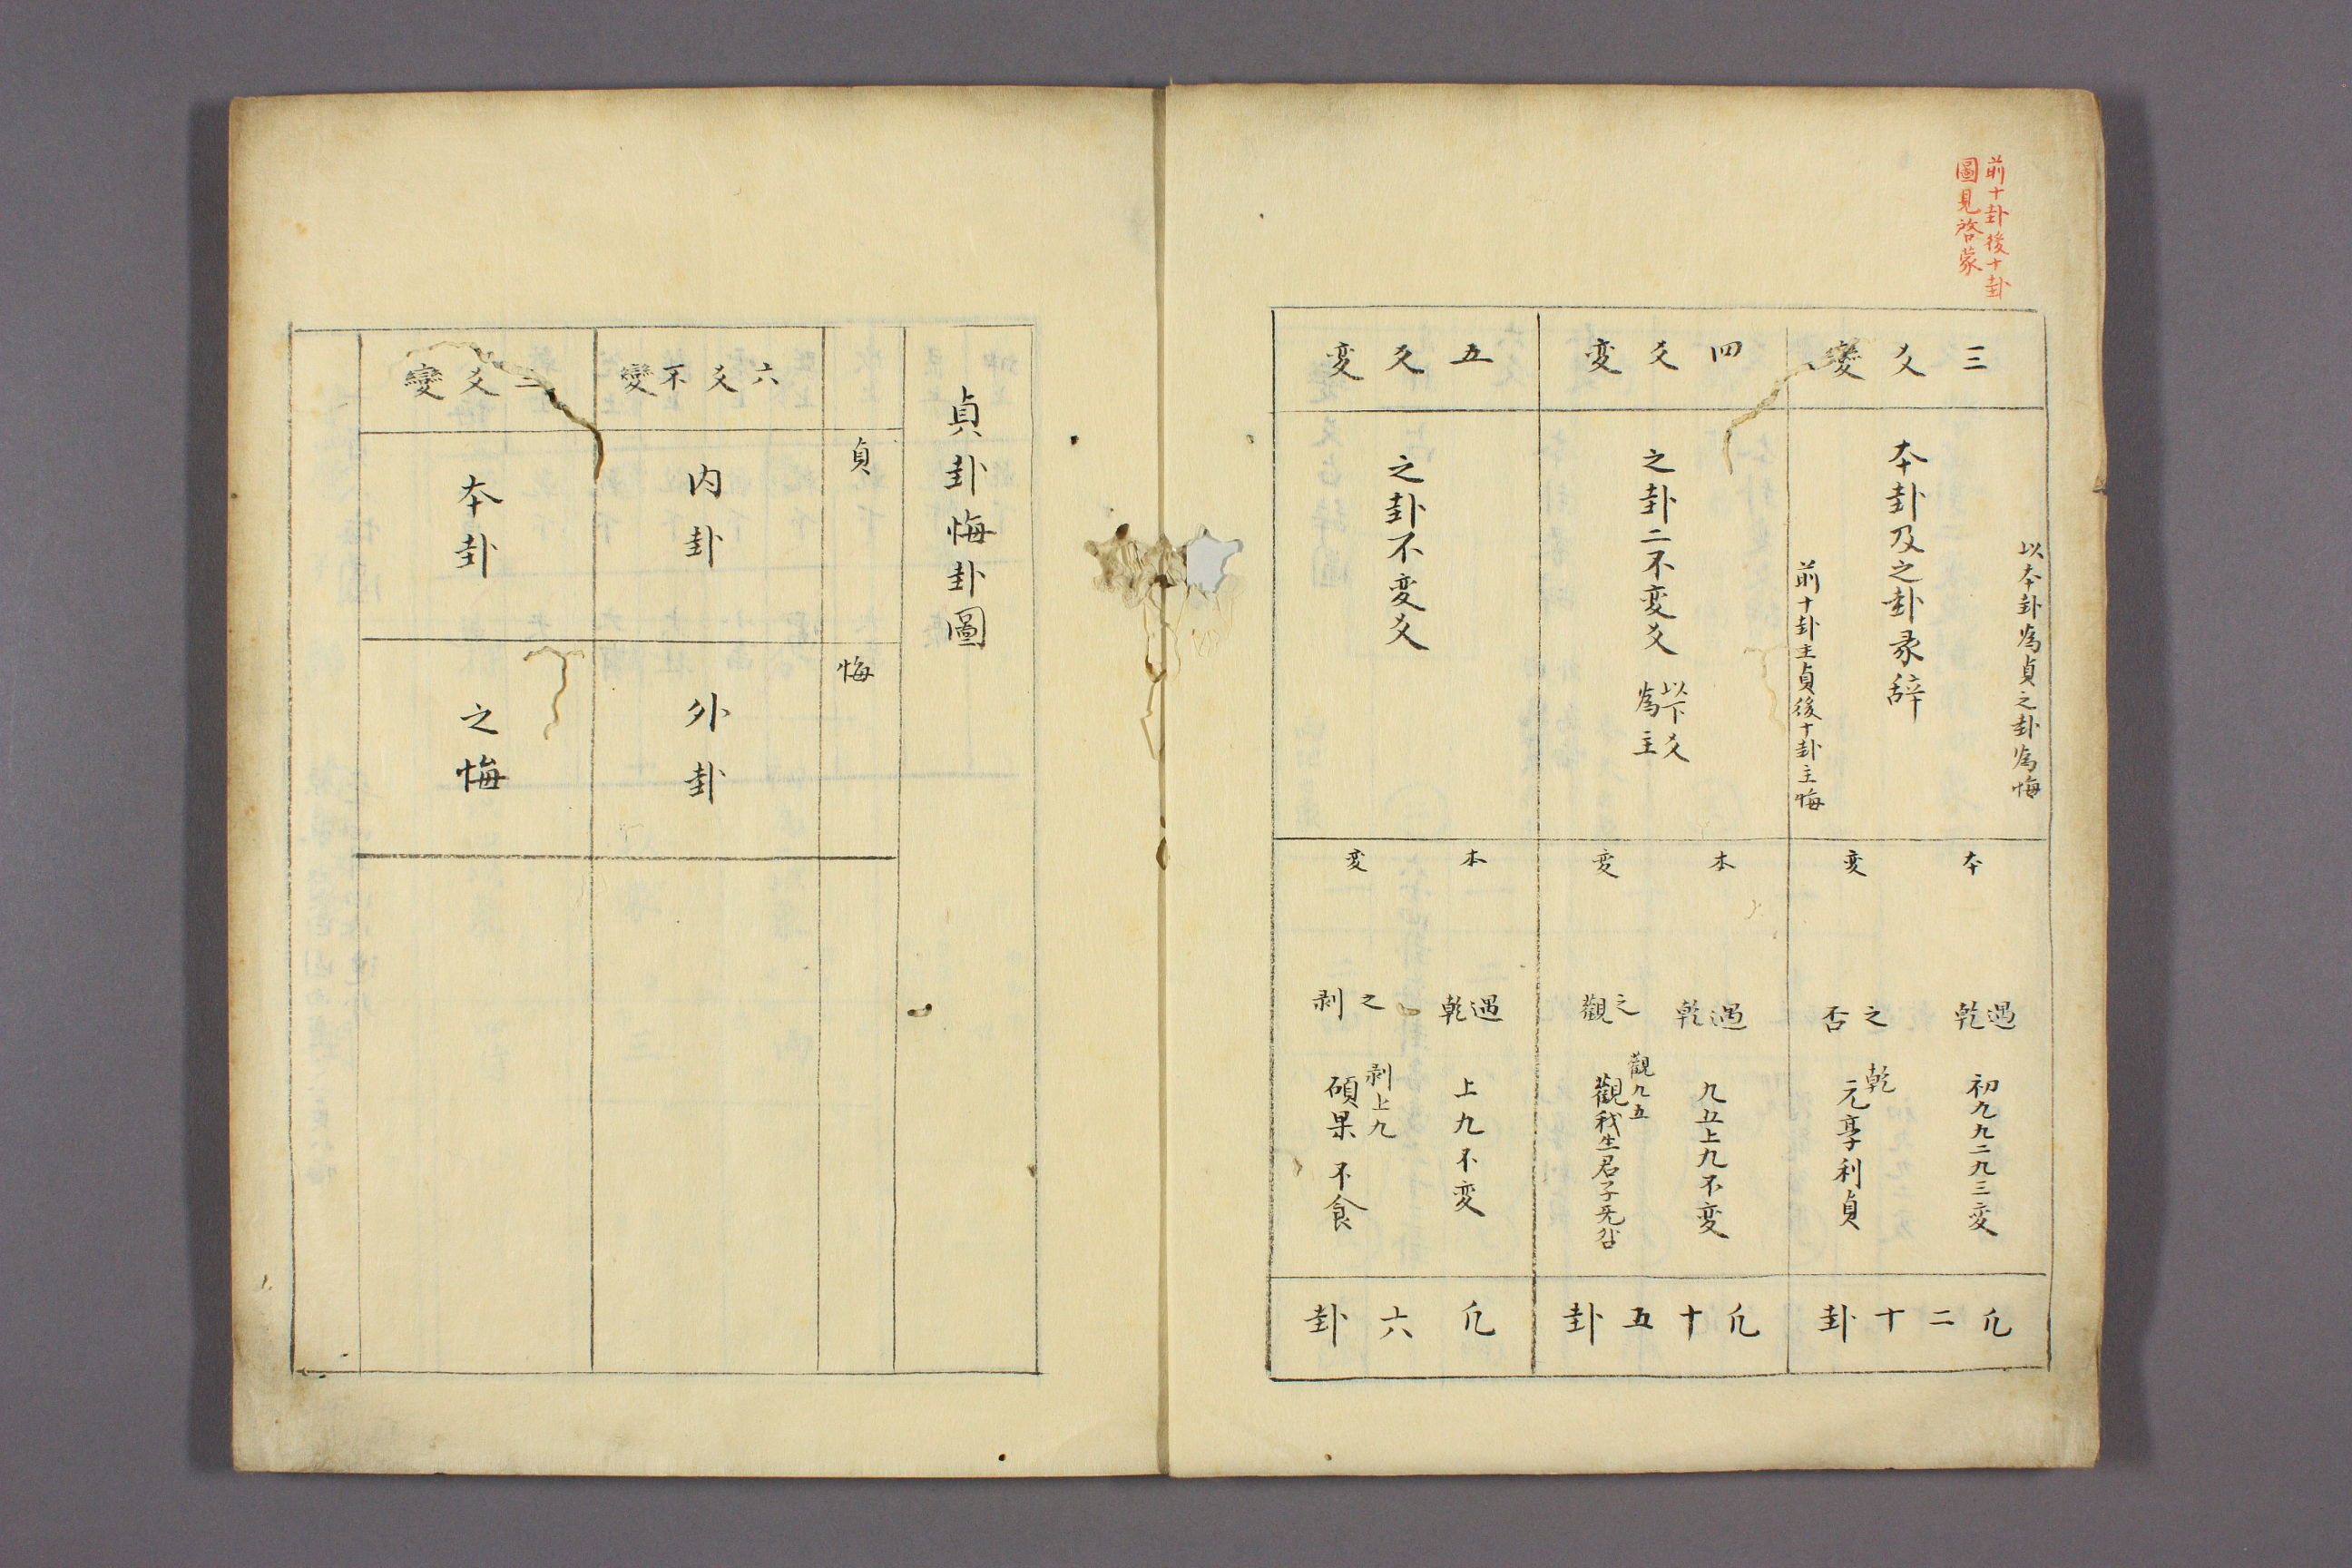 前十卦後十卦
圖見啓蒙
三爻變
以本卦為貞之卦為悔
本卦及之卦彖辞
前十卦主貞後十卦主悔
本
変
遇乾
之否
初九九二九三変
乾
元亨利貞
凡二十卦
四爻変
之卦二不変爻
以下爻
為主
本
変
遇乾
之觀
九五上九不変
觀九五
觀我生君子无咎
凡十五卦
五爻変
之卦不変爻
本
変
遇乾
之剥
上九不変
剥上九
碩果不食
凡六卦
貞卦悔卦圖
貞
悔
六爻不變
内卦
外卦
爻變
本卦
之悔